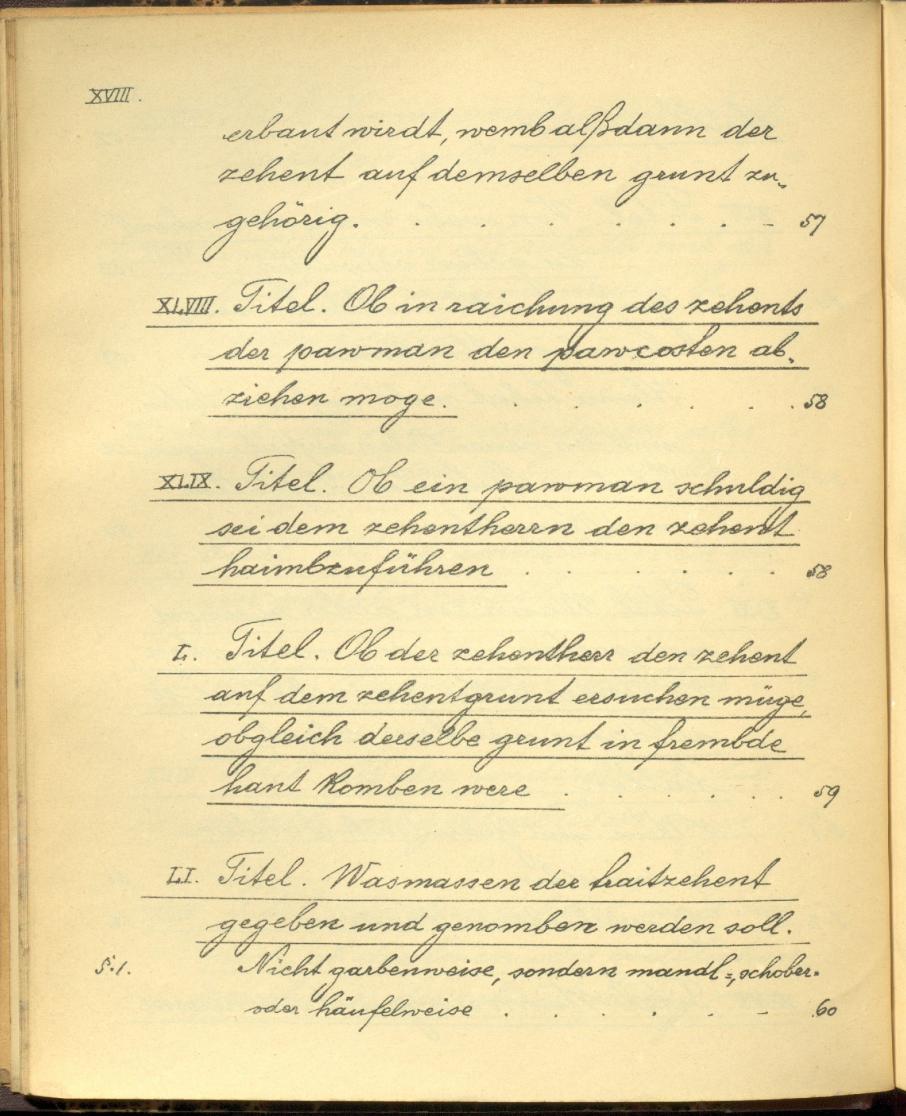 XVIII.
erbaut wirdt, wemb alßdann der
zehent auf demselben grunt zu-
gehörig. . . . . . . - 57
XLVIII. Titel. Ob in raichung des zehents
der pawman den pawcosten ab-
ziehen moge. . . . . . . 58
XLIX. Titel. Ob ein pawman schuldig
sei dem zehentherrn den zehent
haimbzuführen . . . . . . 58
L. Titel. Ob der zehentherr den zehent
auf dem zehentgrunt ersuchen müge,
obgleich derselbe grunt in frembde
hant komben were . . . . . . 59
LI. Titel. Wasmassen der traitzehent
gegeben und genomben werden soll.
§.1. Nicht garbenweise, sondern mandl=, schober-
oder häufelweise . . . . - 60